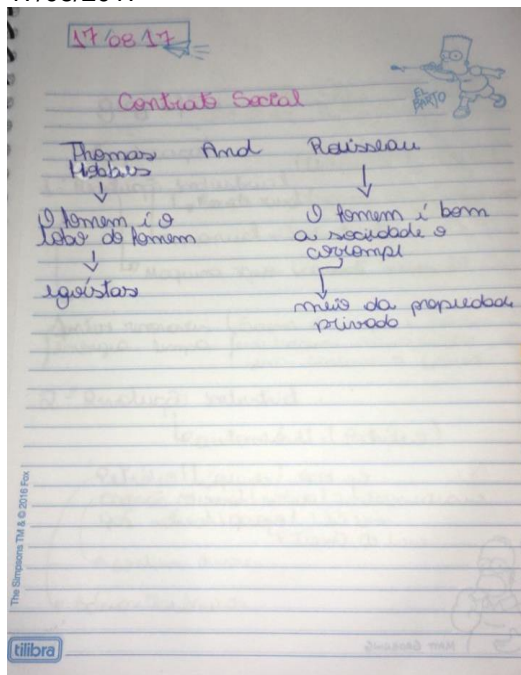 17/08/17
EL BARTO
Contrato Social
Thomas Hobbes And Rousseau
O homem é o lobo do homem
O homem é bom a sociedade o corrompe
egoístas
meio da propiedade privada
The Simpsons TM & © 2016 Fox
tilibra